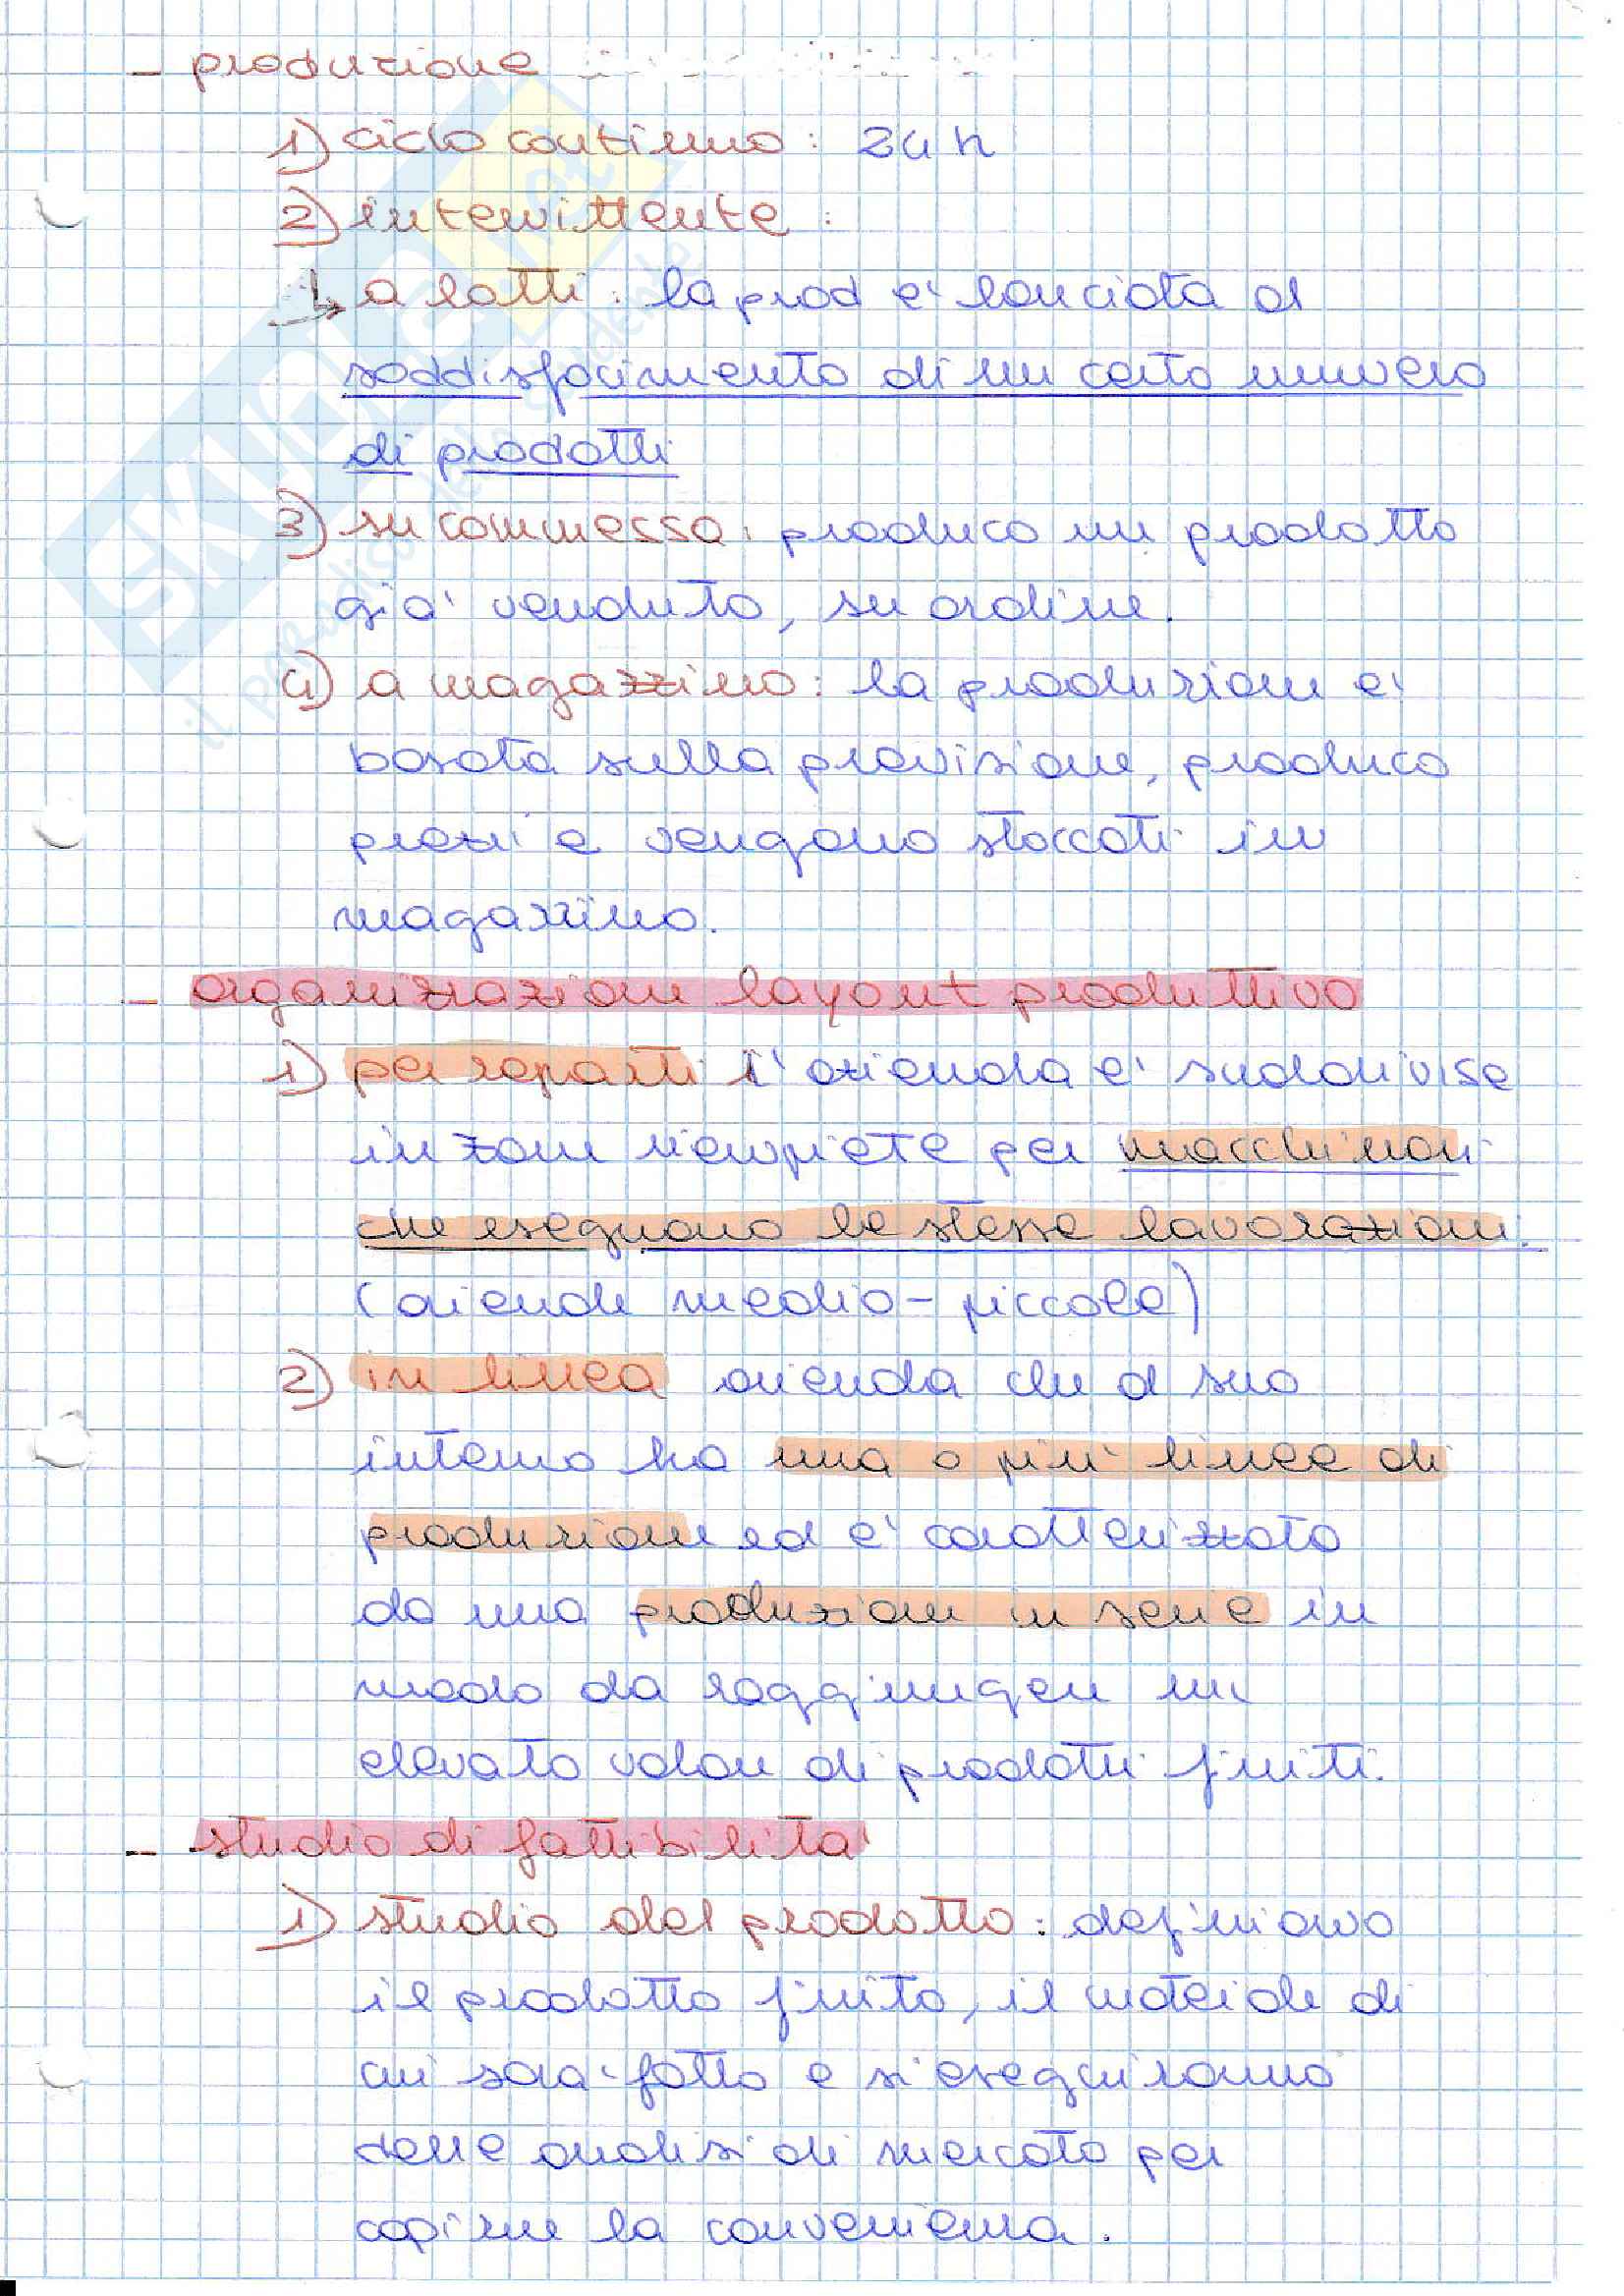 - produzione
1) ciclo continuo: 24 h
2) intermittente:
↳ a lotti: la prod e' lanciata al
soddisfacimento di un certo numero
di prodotti
3) su commessa: produco un prodotto
gia' venduto, su ordine.
4) a magazzino: la produzione e'
basata sulla previsione, produco
pezzi e vengono stoccati in
magazzino.
- organizzazione layout produttivo
1) per reparti l'azienda e' suddivisa
in zone riempiete per macchinari
che eseguono le stesse lavorazioni.
(aziende medio-piccole)
2) in linea azienda che al suo
interno ha una o piu' linee di
produzione ed e' caratterizzata
da una produzione in serie in
modo da raggiungere un
elevato valore di prodotti finiti.
- studio di fattibilita'
1) studio del prodotto: definiamo
il prodotto finito, il materiale di
cui sara' fatto e si eseguiranno
delle analisi di mercato per
capirne la convenienza.
SKUOLA.net
il paradiso dello studente